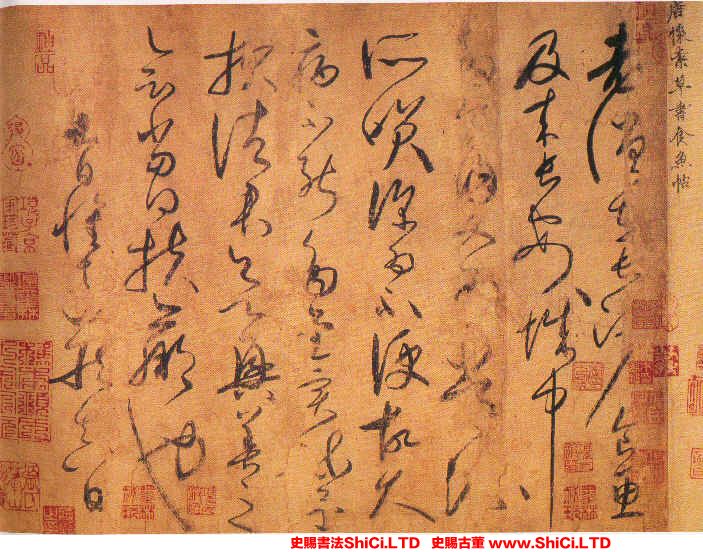 唐懷素草書食魚帖
老僧在長沙食魚
及來長安城中
多食肉又為常流
所笑深為不便故久
病不能多書實疏還
報諸君欲興善之
會當得扶羸也
九日懷素藏真白
史賜書法ShiCi.LTD 史賜古董 www.ShiCi.LTD